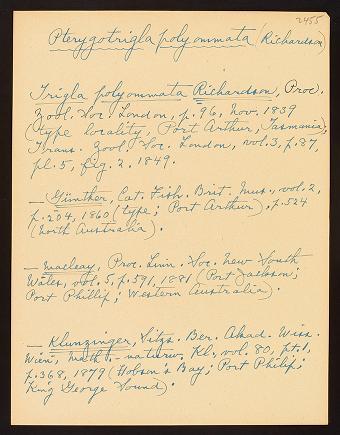 2455
Pterygotrigla polyommata (Richardson)
Trigla polyommata Richardson, Proc.
Zool. Soc. London, p. 96, Nov. 1839
(type locality, Port Arthur, Tasmania);
Trans. Zool. Soc. London, vol. 3, p. 87,
pl. 5, fig. 2. 1849.
— Günther, Cat. Fish. Brit. Mus., vol. 2,
p. 204, 1860 (type; Port Arthur). p. 524
(South Australia).
— Macleay, Proc. Linn. Soc. New South
Wales, vol. 5, p. 591, 1881 (Port Jackson;
Port Phillip; Western Australia).
— Klunzinger, Sitzs. Ber. Akad. Wiss.
Wien, Math. - naturw. Kl., vol. 80, pt. 1,
p. 368, 1879 (Hobson's Bay; Port Philip;
King George Sound).